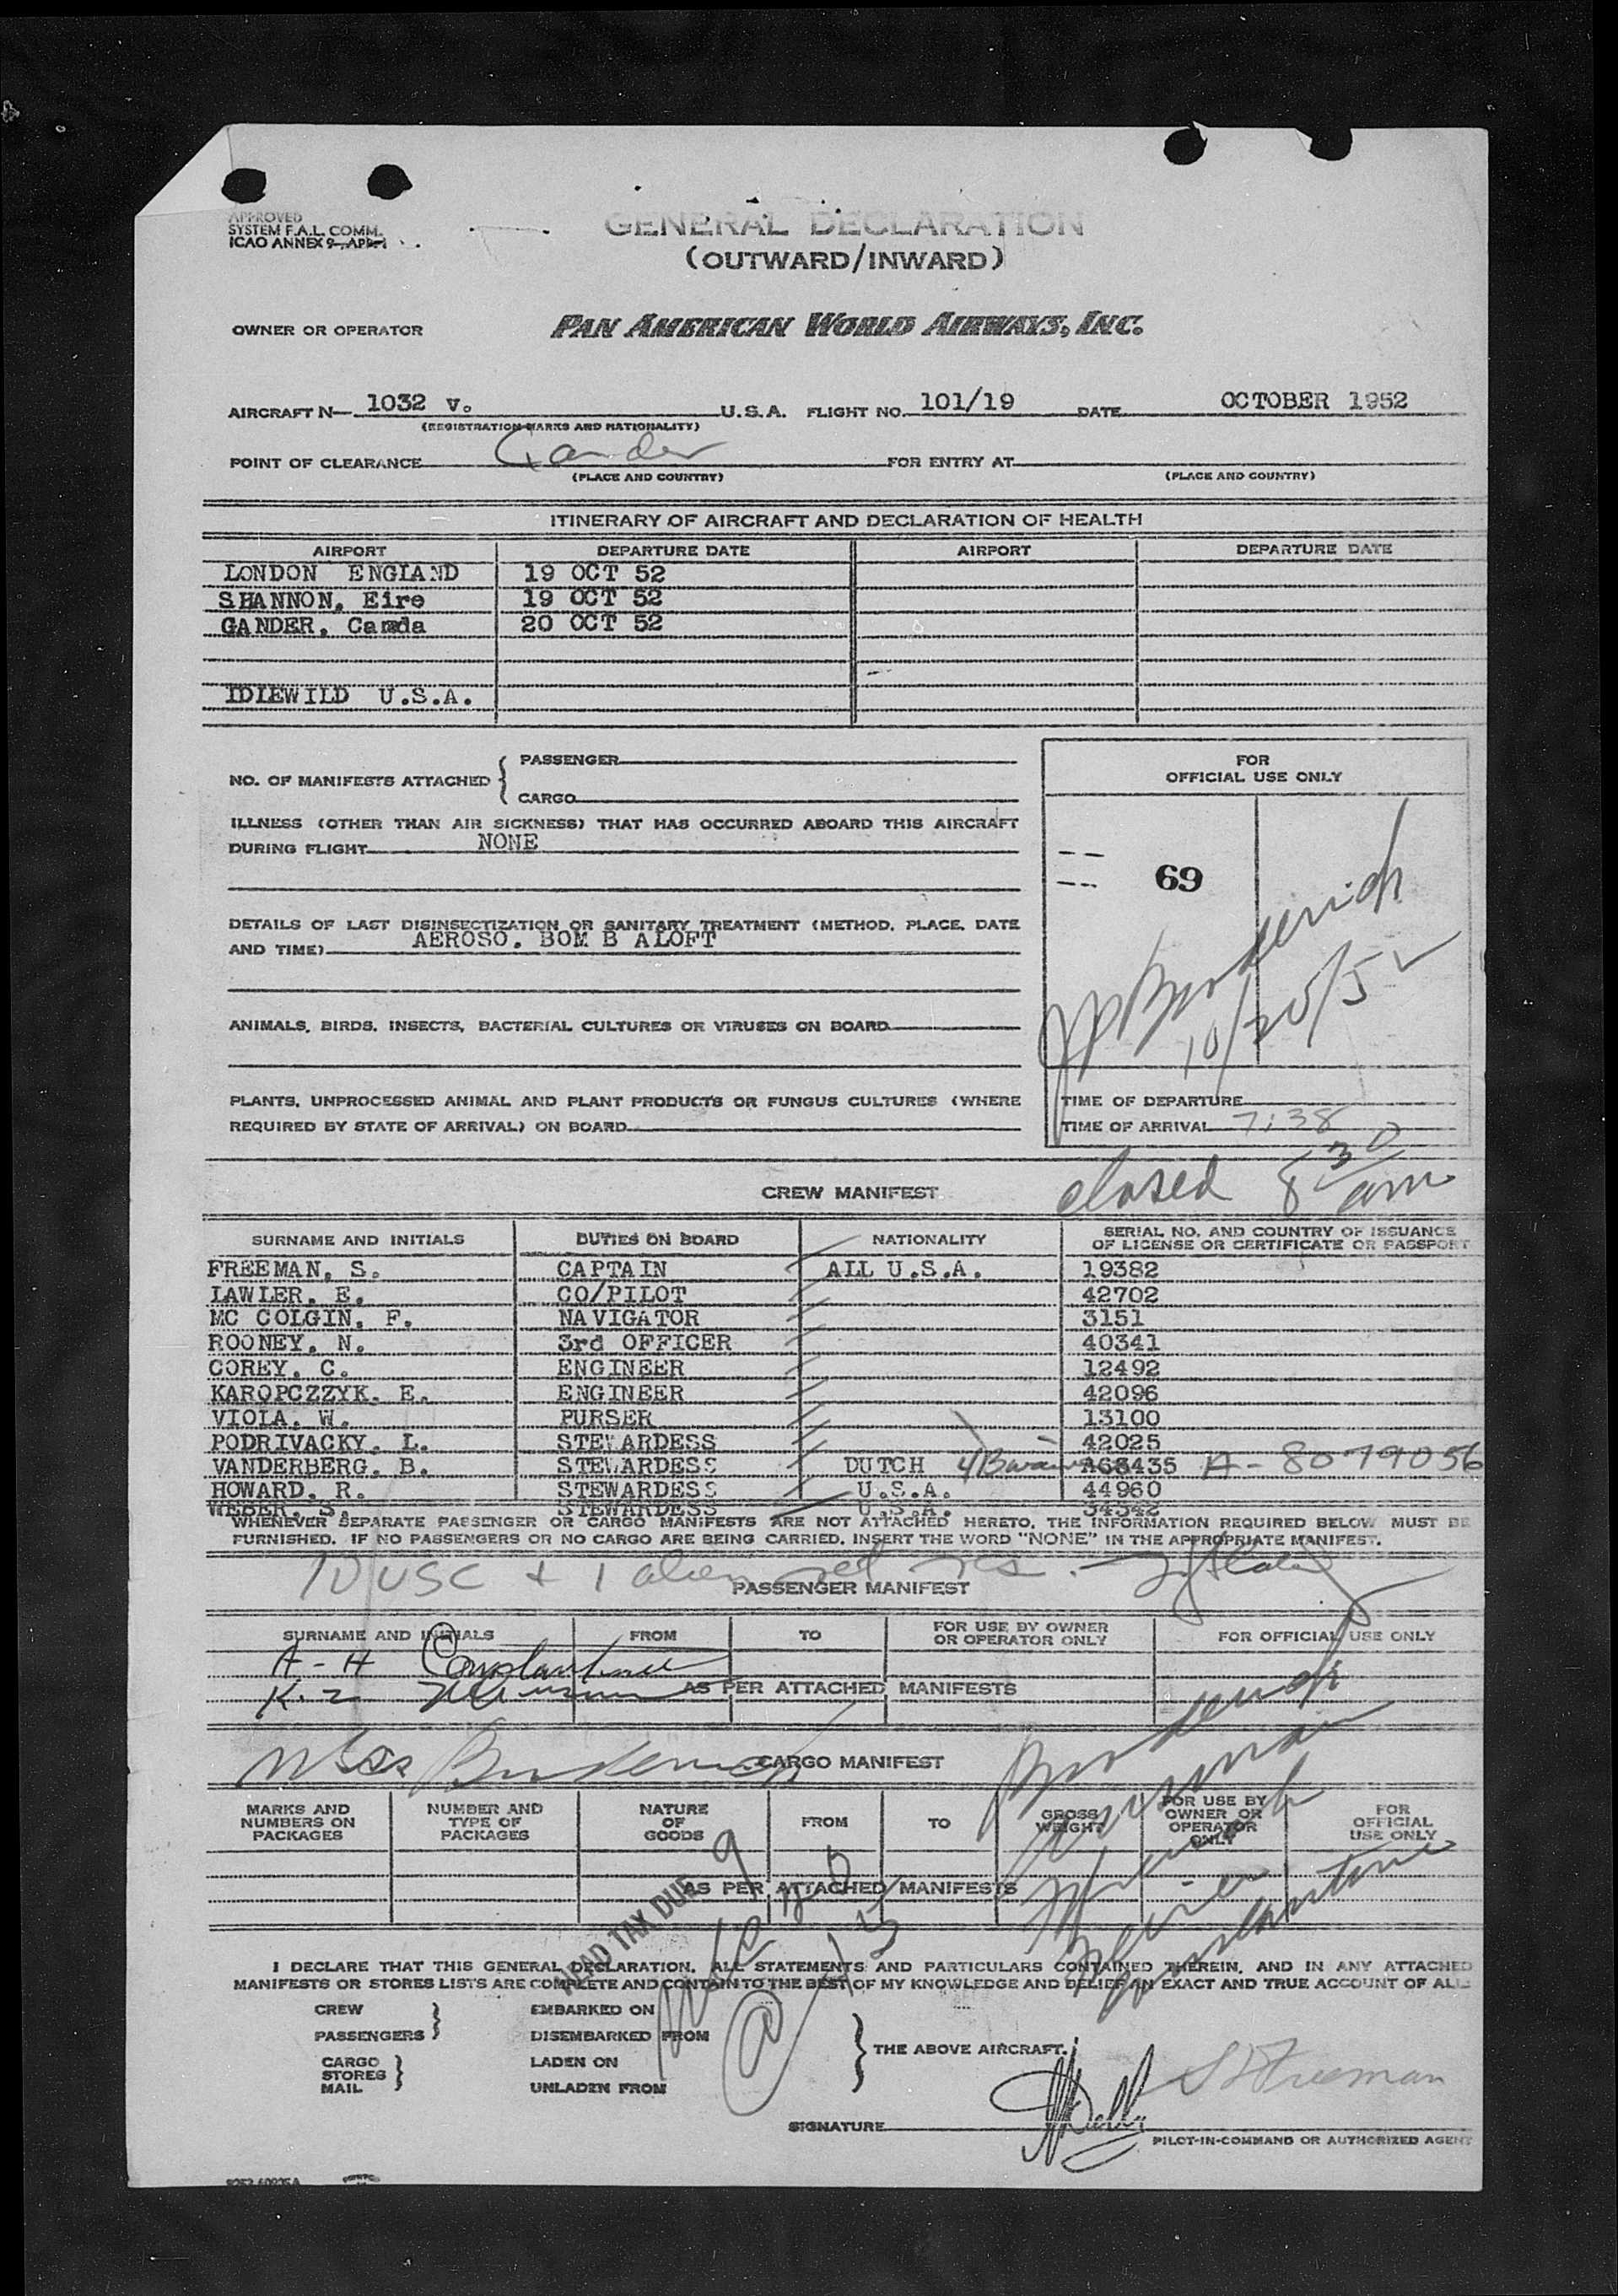 APPROVED
SYSTEM F.A.L. COMM.
ICAO ANNEX 9
GENERAL DECLARATION
(OUTWARD/INWARD)
OWNER OR OPERATOR PAN AMERICAN WORLD AIRWAYS, INC.
AIRCRAFT N— 1032 V. U.S.A. FLIGHT NO. 101/19 DATE OCTOBER 1952
(REGISTRATION MARKS AND NATIONALITY)
POINT OF CLEARANCE Gander FOR ENTRY AT
(PLACE AND COUNTRY) (PLACE AND COUNTRY)
ITINERARY OF AIRCRAFT AND DECLARATION OF HEALTH
AIRPORT DEPARTURE DATE AIRPORT DEPARTURE DATE
LONDON ENGLAND 19 OCT 52
SHANNON, Eire 19 OCT 52
GANDER, Canda 20 OCT 52
IDLEWILD U.S.A.
NO. OF MANIFESTS ATTACHED { PASSENGER
CARGO
FOR
OFFICIAL USE ONLY
ILLNESS (OTHER THAN AIR SICKNESS) THAT HAS OCCURRED ABOARD THIS AIRCRAFT
DURING FLIGHT NONE
69
DETAILS OF LAST DISINSECTIZATION OR SANITARY TREATMENT (METHOD, PLACE, DATE
AND TIME) AEROSO. BOM B ALOFT
JP Broderick
10/20/52
ANIMALS, BIRDS, INSECTS, BACTERIAL CULTURES OR VIRUSES ON BOARD
PLANTS, UNPROCESSED ANIMAL AND PLANT PRODUCTS OR FUNGUS CULTURES (WHERE
REQUIRED BY STATE OF ARRIVAL) ON BOARD
TIME OF DEPARTURE
TIME OF ARRIVAL 7:38
closed 8 30 am
CREW MANIFEST
SURNAME AND INITIALS DUTIES ON BOARD NATIONALITY SERIAL NO. AND COUNTRY OF ISSUANCE
OF LICENSE OR CERTIFICATE OR PASSPORT
FREEMAN, S. CAPTAIN ALL U.S.A. 19382
LAWLER, E. CO/PILOT 42702
MC COLGIN, F. NAVIGATOR 3151
ROONEY, N. 3rd OFFICER 40341
COREY, C. ENGINEER 12492
KAROPCZZYK, E. ENGINEER 42096
VIOLA, W. PURSER 13100
PODRIVACKY, L. STEWARDESS 42025
VANDERBERG, B. STEWARDESS DUTCH A63435 A-8079056
HOWARD, R. STEWARDESS U.S.A. 44960
WEBER, S. STEWARDESS U.S.A. 34342
WHENEVER SEPARATE PASSENGER OR CARGO MANIFESTS ARE NOT ATTACHED HERETO, THE INFORMATION REQUIRED BELOW MUST BE
FURNISHED. IF NO PASSENGERS OR NO CARGO ARE BEING CARRIED, INSERT THE WORD "NONE" IN THE APPROPRIATE MANIFEST.
10 USC + 1 alien
PASSENGER MANIFEST
SURNAME AND INITIALS FROM TO FOR USE BY OWNER
OR OPERATOR ONLY FOR OFFICIAL USE ONLY
A-H Constantine
K-Z
AS PER ATTACHED MANIFESTS
Broderick
CARGO MANIFEST
MARKS AND
NUMBERS ON
PACKAGES
NUMBER AND
TYPE OF
PACKAGES
NATURE
OF
GOODS
FROM
TO
GROSS
WEIGHT
FOR USE BY
OWNER OR
OPERATOR
ONLY
FOR
OFFICIAL
USE ONLY
Broderick
Constantine
AS PER ATTACHED MANIFESTS
HEAD TAX DUE 9
I DECLARE THAT THIS GENERAL DECLARATION, ALL STATEMENTS AND PARTICULARS CONTAINED THEREIN, AND IN ANY ATTACHED
MANIFESTS OR STORES LISTS ARE COMPLETE AND CONTAIN TO THE BEST OF MY KNOWLEDGE AND BELIEF AN EXACT AND TRUE ACCOUNT OF ALL
CREW EMBARKED ON
PASSENGERS DISEMBARKED FROM
THE ABOVE AIRCRAFT.
CARGO LADEN ON
STORES
MAIL UNLADEN FROM
S Freeman
SIGNATURE
PILOT-IN-COMMAND OR AUTHORIZED AGENT